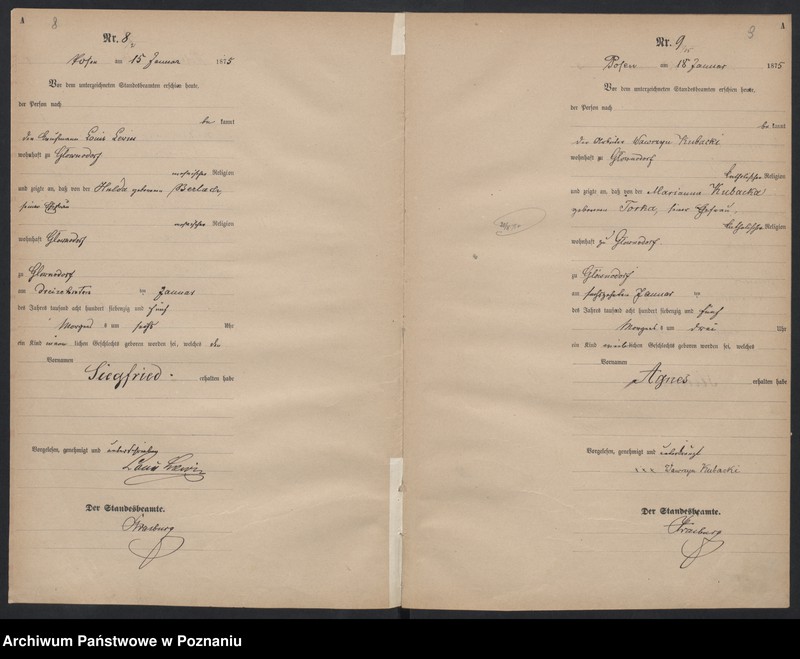 A 8
Nr. 8
Posen am 15 Januar 1875
Vor dem unterzeichneten Standesbeamten erschien heute,
der Person nach
be kannt
den Kaufmann Louis Lewin
wohnhaft zu Glownodorf
mosaischer Religion
und zeigte an, daß von der Hulda geborene
seiner Ehefrau
mosaischer Religion
wohnhaft Glownodorf
zu Glownodorf
am dreizehnten ten Januar
des Jahres tausend acht hundert siebenzig und fünf
Morgens um sechs Uhr
ein Kind männ lichen Geschlechts geboren worden sei, welches den
Vornamen
Siegfried. erhalten habe
Vorgelesen, genehmigt und unterschrieben
Louis Lewin
Der Standesbeamte.
Strasburg
9 A
Nr. 9
Posen am 18 Januar 1875
Vor dem unterzeichneten Standesbeamten erschien heute,
der Person nach
be kannt
der Arbeiter Wawrzyn Kubacki
wohnhaft zu Glownodorf
katholischer Religion
und zeigte an, daß von der Marianna Kubacka
geborenen Torka, seiner Ehefrau,
katholischer Religion
wohnhaft zu Glownodorf
zu Glownodorf
am sechszehnten Januar
des Jahres tausend acht hundert siebenzig und fünf
Morgens um drei Uhr
ein Kind weiblichen Geschlechts geboren worden sei, welches
Vornamen
Agnes erhalten habe
Vorgelesen, genehmigt und
+++ Wawrzyn Kubacki
Der Standesbeamte.
Strasburg
Archiwum Państwowe w Poznaniu